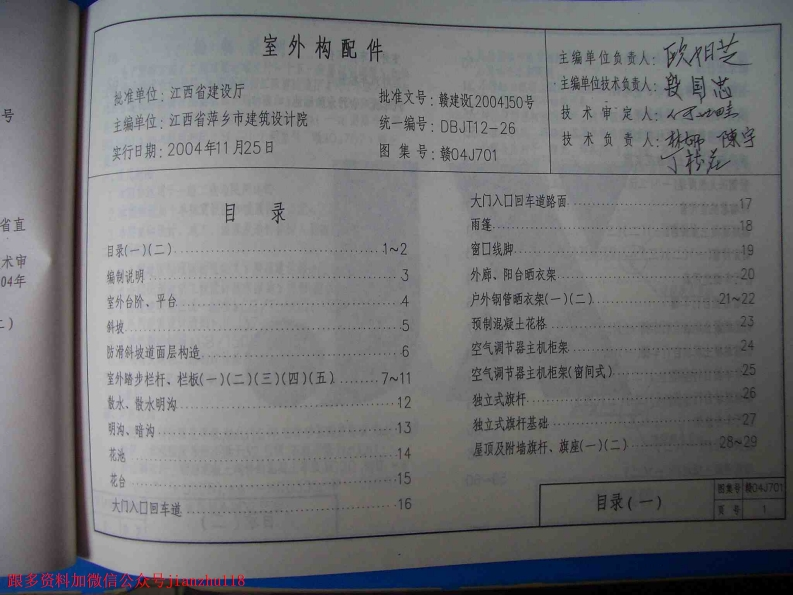 号
省直
术审
04年
二)
室外构配件
批准单位: 江西省建设厅
主编单位: 江西省萍乡市建筑设计院
实行日期: 2004年11月25日
批准文号: 赣建设[2004]50号
统一编号: DBJT12-26
图 集 号: 赣04J701
主编单位负责人:
主编单位技术负责人: 段国志
技 术 审 定 人:
技 术 负 责 人: 陳宇
目 录
目录(一)(二)........1~2
编制说明........3
室外台阶、平台........4
斜坡........5
防滑斜坡道面层构造........6
室外踏步栏杆、栏板(一)(二)(三)(四)(五)........7~11
散水、散水明沟........12
明沟、暗沟........13
花池........14
花台........15
大门入口回车道........16
大门入口回车道路面........17
雨篷........18
窗口线脚........19
外廊、阳台晒衣架........20
户外钢管晒衣架(一)(二)........21~22
预制混凝土花格........23
空气调节器主机柜架........24
空气调节器主机柜架(窗间式)........25
独立式旗杆........26
独立式旗杆基础........27
屋顶及附墙旗杆、旗座(一)(二)........28~29
目录(一)
图集号 赣04J701
页 号 1
跟多资料加微信公众号jianzhu118